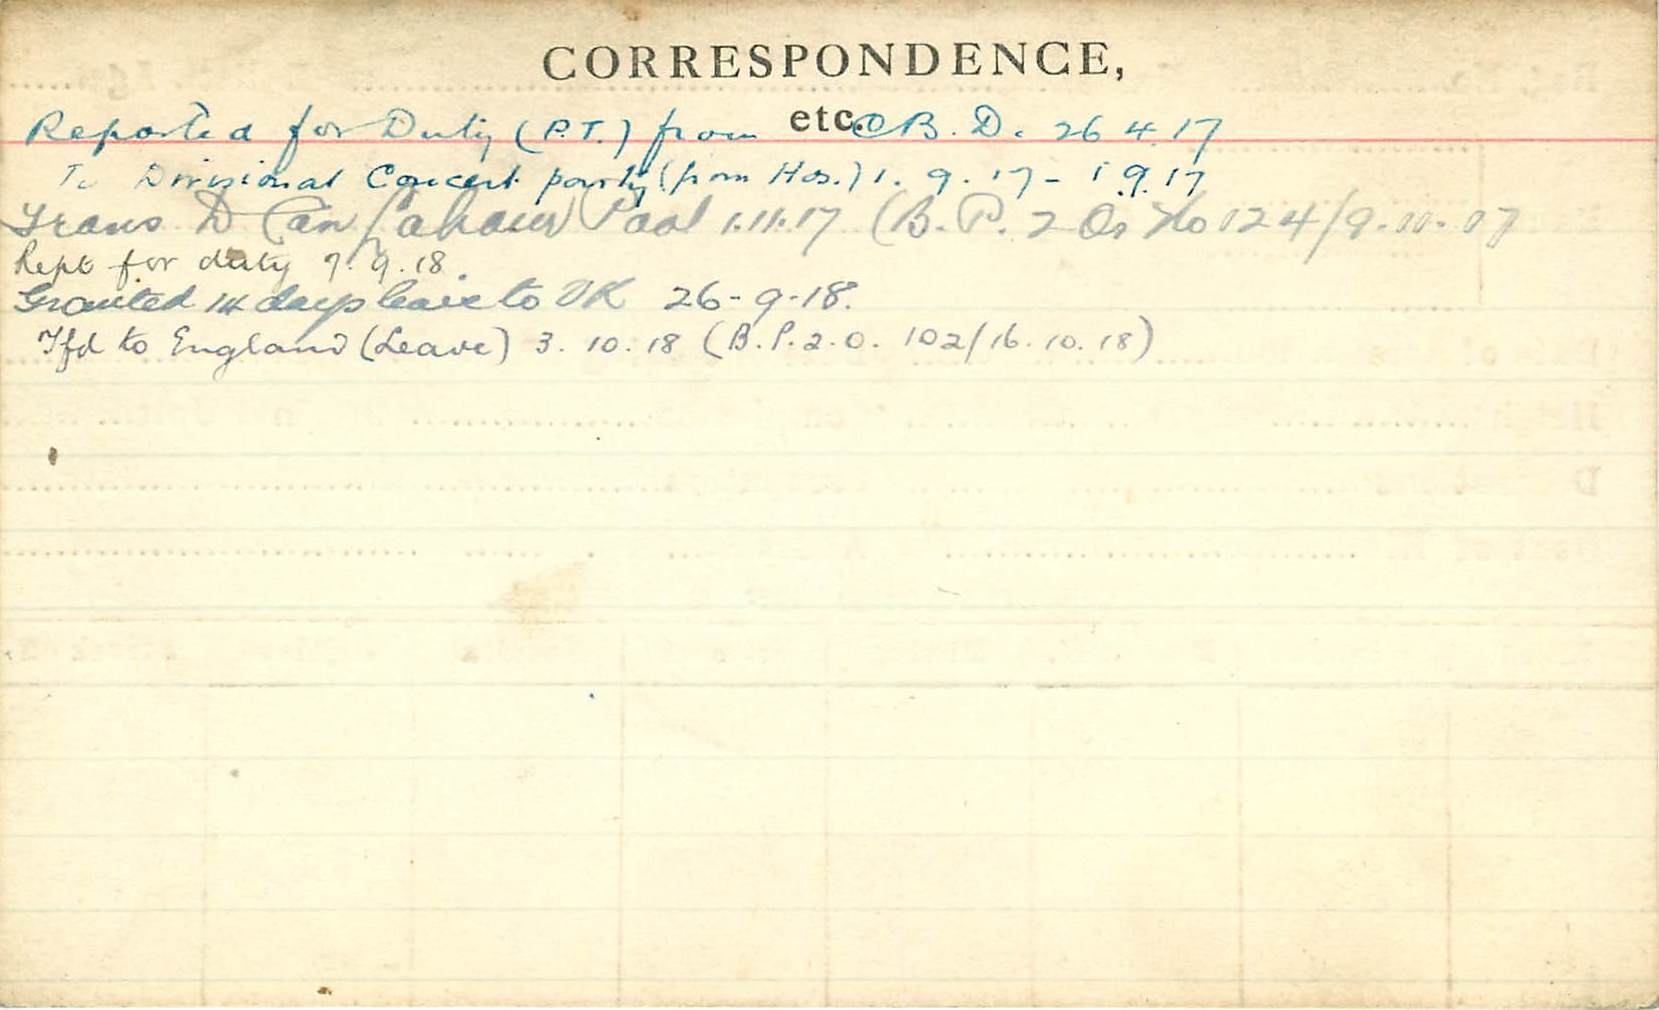 CORRESPONDENCE,
etc.
Reported for Duty (P.T.) from C B. D. 26 4. 17
To Divisional Concert party (from Hos.) 1. 9. 17 - 1 9. 17
Trans D Can Labour Pool 1.11.17 (B. P. 2 Os No 124/9-11-17
Rept for duty 7. 9. 18
Granted 14 days leave to UK 26-9-18.
Tfd to England (Leave) 3. 10. 18 (B. P. 2. O. 102/16. 10. 18)